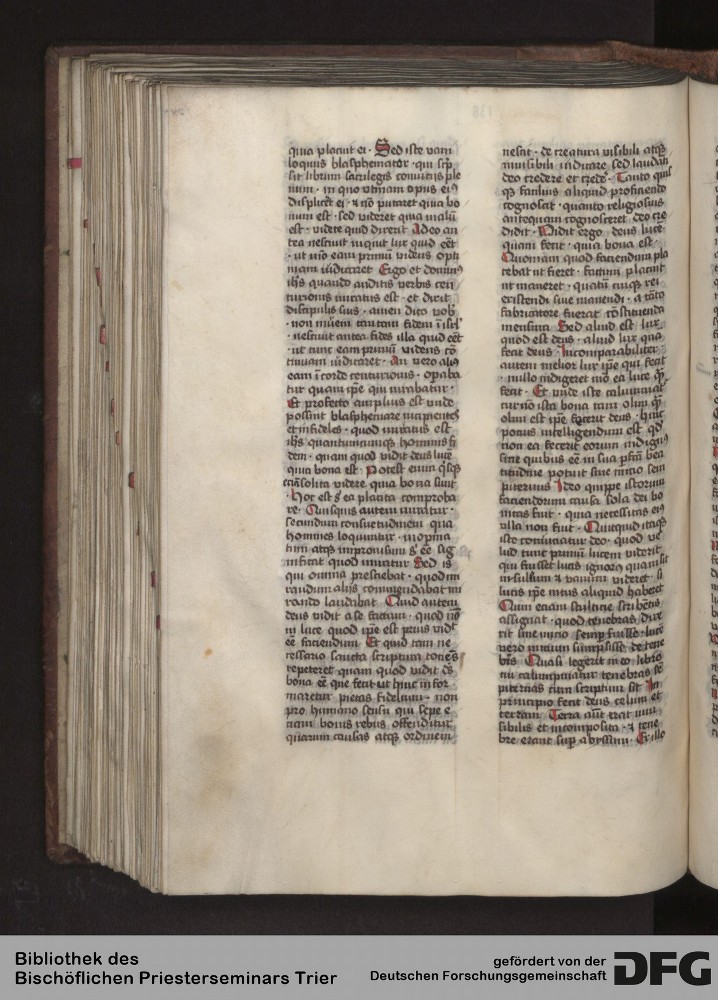 quia placuit ei · Sed iste vani
loquus blasphemator · qui scp̄
sit librum sacrilegis conuitijs ple
num · in quo vtinam opus ei9
displicēt ei · ⁊ nō putaret quia bo
num est · sed videret quia malū
est · videte quid dixerit Adeo an
tea nesciuit inquit lux quid eēt
· ut nūc eam primū videns opti
mam iudicaret Ergo et domin9
ihs̄ quando auditis verbis cen
turionis miratus est · et dixit
discipulis suis · amen dico vob̄
· non inueni tantam fidem ī isrl̄
· nesciuit antea fides illa quid eēt
· ut tunc eam primū videns cō
tinuam iudicaret · An vero ali9
eam ī corde centurionis · opaba
tur quam ip̄e qui mirabatur ·
Et profecto amplius est unde
possint blasphemare incipientes
et infideles · quod miratus est
ihs̄ quantumcunque hominis fi
dem · quam quod vidit deus lucē
quia bona est · Potest enim q̄sq̄
etiā solita videre quia bona sunt
· hoc est s; ea placita comproba
re · Quisquis autem miratur ·
secundum consuetudinem qua
homines loquuntur · inopina
tum atq; improuisum s; eē sig
nificat quod miratur Sed is
qui omnia presciebat · quod mi
randum alijs commendabat mi
rando laudabat Quid autem
deus vidit a se factum · quod nō
in luce quod ip̄e est prius vidit
eē faciendum Et quid tam ne
cessario sancta scriptura tociēs
repeteret quam quod vidit ds̄
bona eē que fecit ut hinc infor
maretur pietas fidelium · non
pro humano sensu qui sepe e
ciam bonis rebus offenditur
quarum causas atq; ordinem
nescit · de creatura visibili atq;
inuisibili iudicare sed laudāti
deo credere et crede · Tanto quis
q; facilius aliquid proficiendo
cognoscit · quanto religiosius
antequam cognosceret deo cre
didit · Vidit ergo deus lucē
quam fecit · quia bona est ·
Quoniam quod faciendum pla
cebat ut fieret · factum placuit
ut maneret · quatū cuiq; rei
existendi siue manendi · a tāto
fabricatore fuerat cōstituenda
mensura Sed aliud est lux
quod est deus · aliud lux quā
fecit deus · Incomparabiliter
autem melior lux ip̄e qui fecit
· nullo indigeret mō ea luce q̄
fecit · Et unde iste calumniat
tur nō ista bona tam olim q̄
olim est ip̄e fecerit deus · hinc
pocius intelligendum est qd̄
non ea fecerit eorum indigus
sine quibus eē in sua pfc̄a bea
titudine potuit sine inicio sem
piternus Ideo quippe istorum
faciendorum causa sola dei bo
nitas fuit · quia necessitas ei9
vlla non fuit · Quicquid itaq;
iste conuiciatur deo · quod ve
lud tunc primū lucem viderit
qui fuisset lucis ignorꝯ quam sit
insulsum ⁊ vanum videret · si
lucis ip̄e intus aliquid haberet
Cum etiam stulticie scribētis
assignat · quod tenebras dixe
rit sine inicio semp fuisse · lucē
vero inicium sumpsisse de tene
bris Quasi legerit in eo libro
cui calumpniatur tenebras se
piternas cum scriptum sit In
principio fecit deus celum et
terram · Terra aūt erat inui
sibilis et incomposita · ⁊ tene
bre erant sup abyssum · Ex illo
Bibliothek des
Bischöflichen Priesterseminars Trier
gefördert von der
Deutschen Forschungsgemeinschaft
DFG